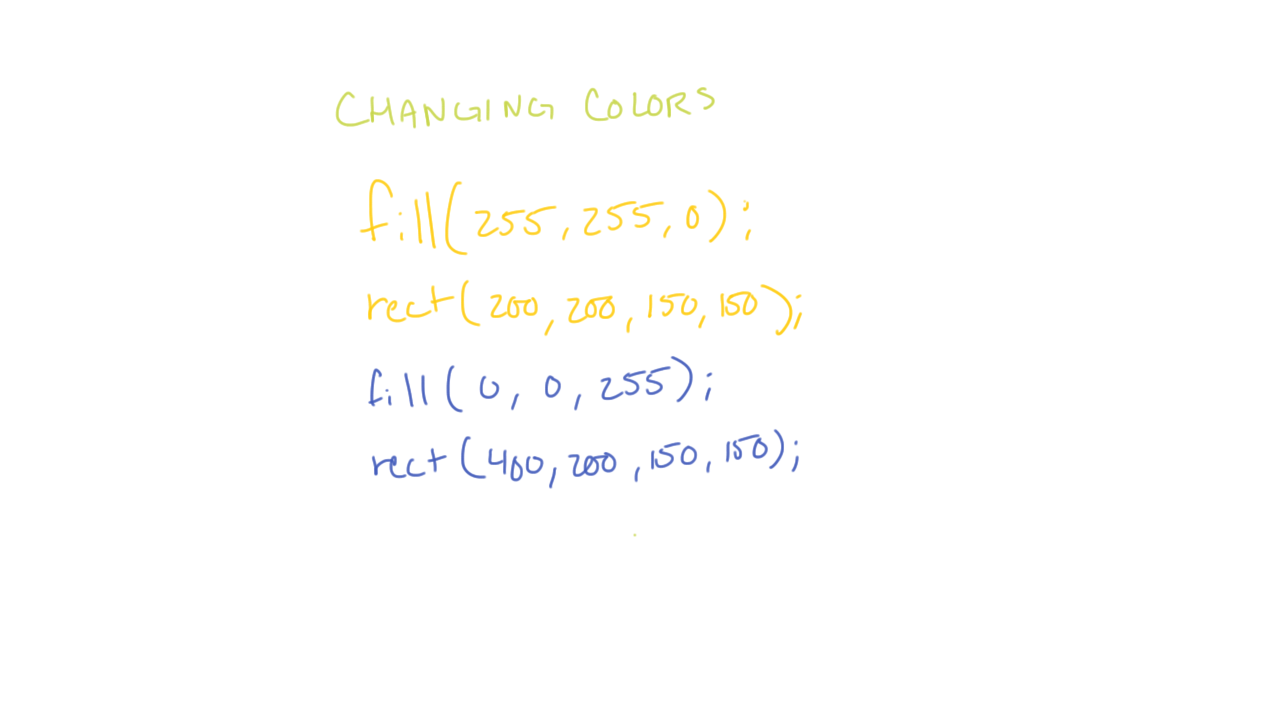 CHANGING COLORS
fill(255,255,0);
rect(200,200,150,150);
fill(0,0,255);
rect(400,200,150,150);